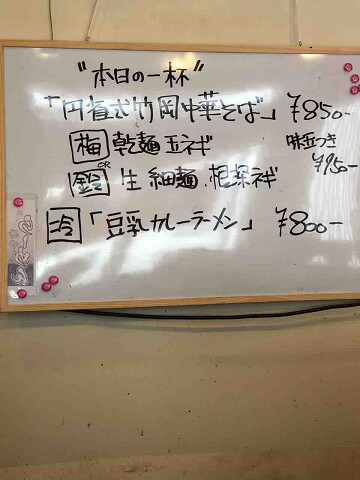 "本日の一杯"
「円雀式竹岡中華そば」 ¥850-
梅 乾麺 玉ネギ 味玉つき
OR ¥950-
鈴 生 細麺 相模ネギ
冷 「豆乳カレーラーメン」 ¥800-